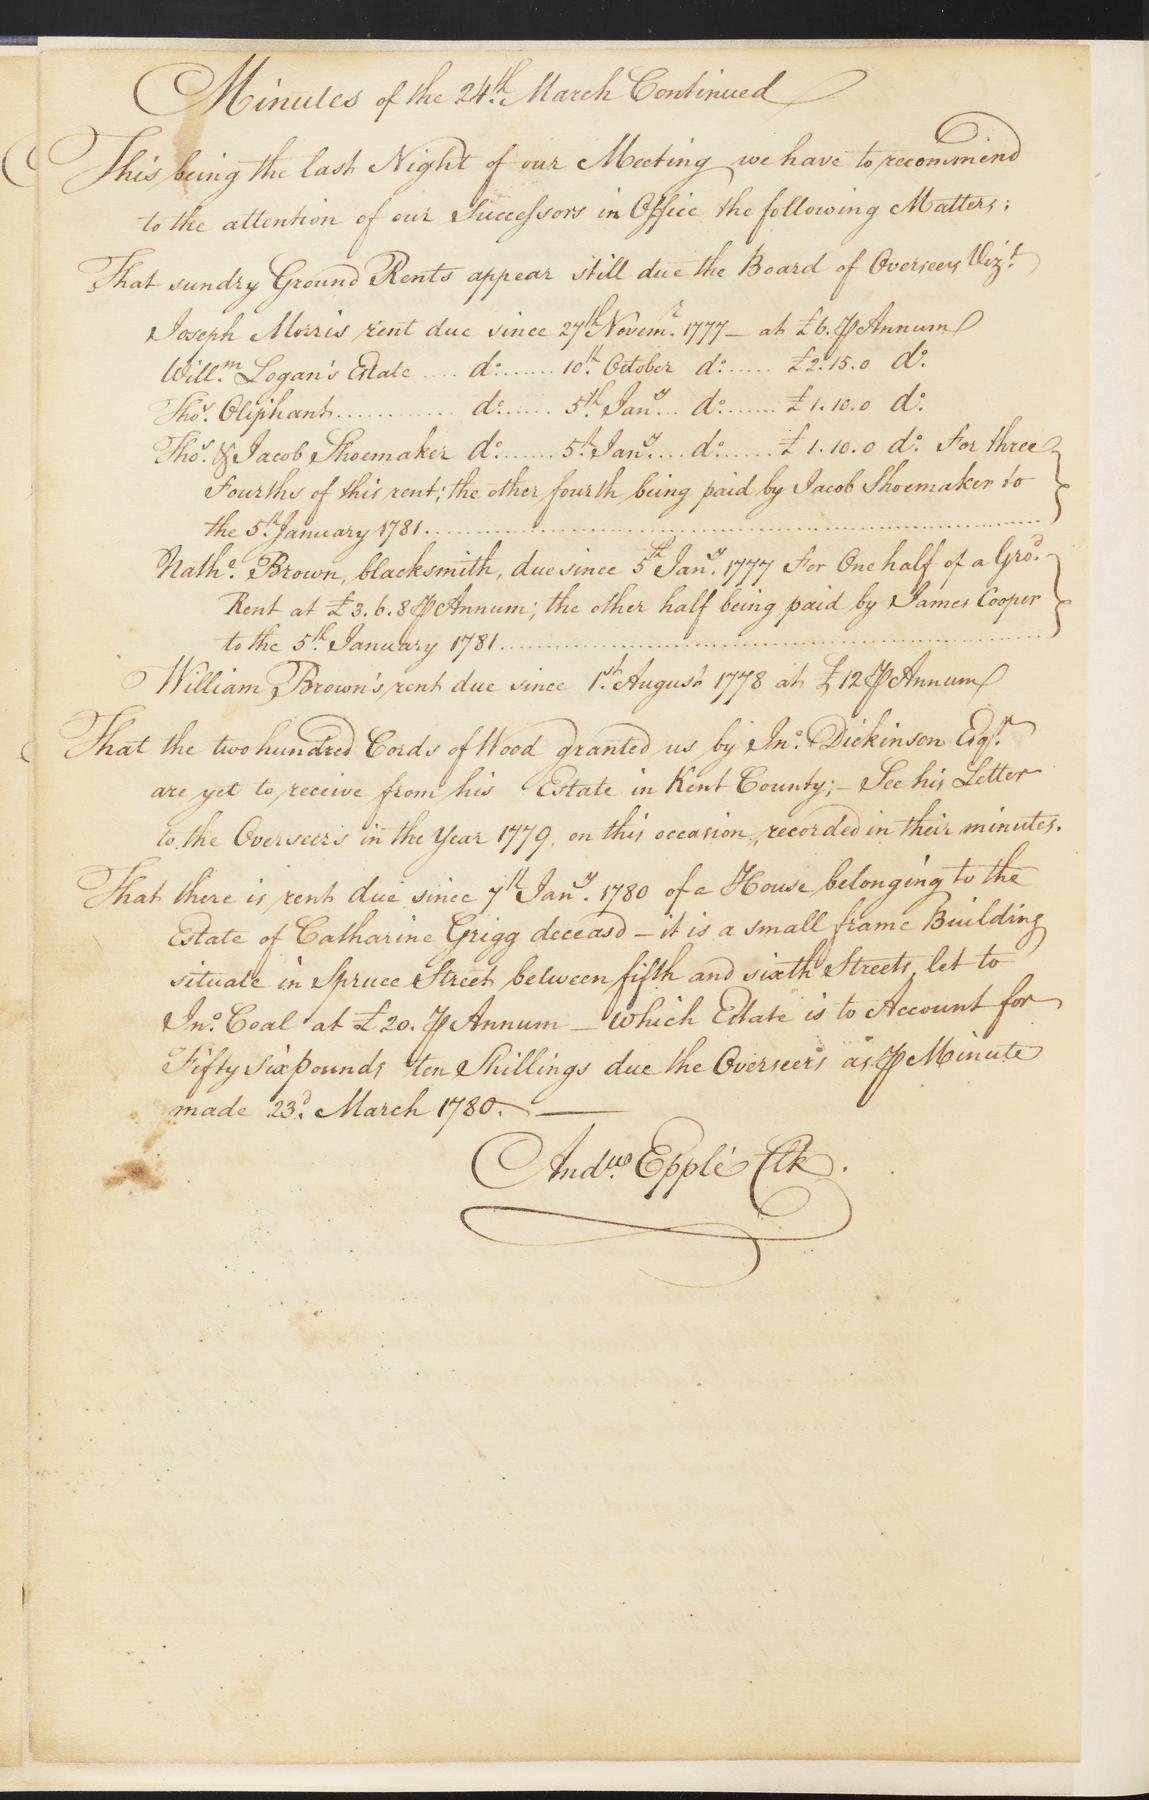 Minutes of the 24th. March Continued
This being the last Night of our Meeting we have to recommend
to the attention of our Successors in Office the following Matters;
That sundry Ground Rents appear still due the Board of Overseers Vizt.
Joseph Morris rent due since 27th. Novemr. 1777 — at £6. ⅌ Annum
Willm. Logan's Estate .... do. ...... 10th. October do. ..... £2.15.0 do.
Thos. Oliphant ............ do. ..... 5th. Jany. ... do. ...... £1.10.0 do.
Thos. & Jacob Shoemaker do. ...... 5th. Jany. ... do. ...... £1.10.0 do. For three
Fourths of this rent; the other fourth being paid by Jacob Shoemaker to
the 5th. January 1781 ..........
Nathl. Brown, blacksmith, due since 5th. Jany. 1777 For One half of a Grod.
Rent at £3.6.8 ⅌ Annum; the other half being paid by James Cooper
to the 5th. January 1781 ..........
William Brown's rent due since 1st. August 1778 at £12 ⅌ Annum
That the two hundred Cords of Wood granted us by Jno. Dickinson Esqr.
are yet to receive from his Estate in Kent County; — See his Letter
to the Overseers in the Year 1779. on this occasion, recorded in their minutes.
That there is rent due since 7th. Jany. 1780 of a House belonging to the
Estate of Catharine Grigg deceasd — it is a small frame Building
situate in Spruce Street between fifth and sixth Streets let to
Jno. Coal at £20. ⅌ Annum — which Estate is to Account for
Fifty six pounds ten Shillings due the Overseers as ⅌ Minute
made 23d. March 1780. —
Andws. Epplé Clk.